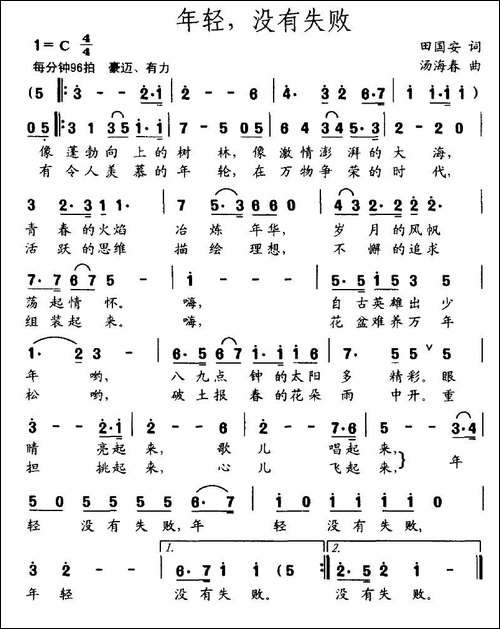 年轻，没有失败
1=C 4/4 田国安 词
每分钟96拍 豪迈、有力 汤海春 曲
(5 ‖: 3 - - 2·1 | 2 - - 6 | 4· 3 2 6·7 | 1·1 1·1 1
05 ‖: 3 1 35 1·1 | 7·5 5 - 05 | 6 4 34 5·3 | 2 - 2 0
像蓬勃向上的树林，像激情澎湃的大海，
有令人羡慕的年轮，在万物争荣的时代，
3 2·3 1 1 | 7 5·3 6 6 0 | 4 3·2 2·2 2
青春的火焰 冶炼年华， 岁月的风帆
活跃的思维 描绘理想， 不懈的追求
7·7 6 7 5 | 1 - - - | 5·5 1 5 3
荡起情怀。 嗨， 自古英雄出少
组装起来。 嗨， 花盆难养万年
1· 2 3 - | 6·5 5 6 1·1 1 1 | 7· 5 5 5 ∨ 5
年哟， 八九点钟的太阳多精彩。眼
松哟， 破土报春的花朵雨中开。重
3 - 2·1 | 2 - - 6 | 2 - 7·6 | 5 - - 3·4
睛亮起来，歌儿唱起来，
担挑起来，心儿飞起来，} 年
5 0 5 5 | 5 5 6·7 | 1 0 1 1 | 1 1 0
轻 没有失败，年 轻 没有失败，
3 - 2 - | 1. 6·7 1 1 (5 :‖ 2. 2·5 2 1 ‖
年轻 没有失败。 没有失败。